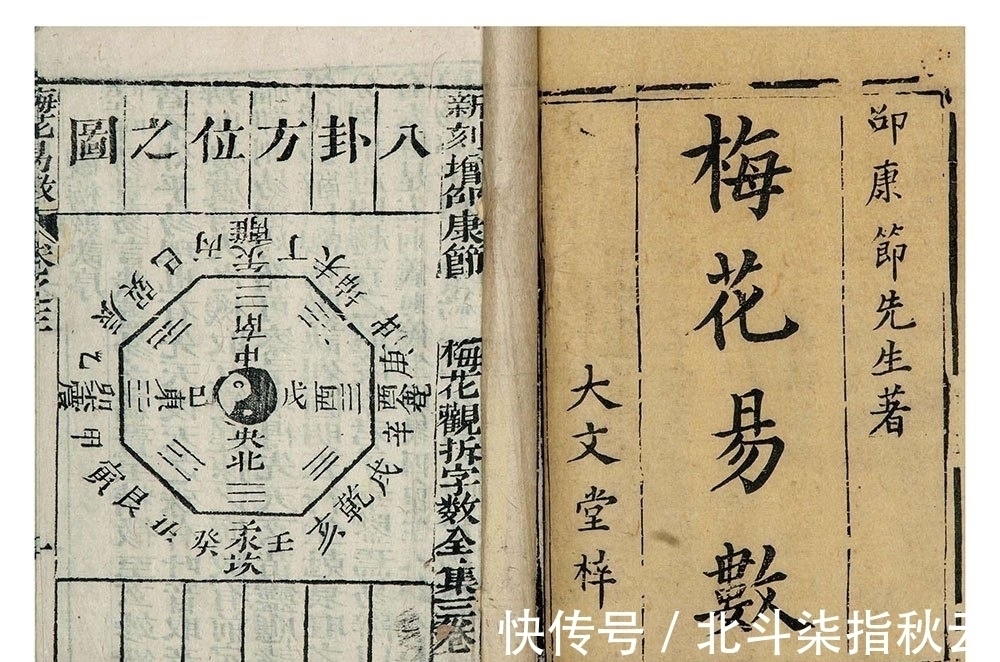 邵康節先生著
梅花易數
大文堂梓
新刻增邵康節
梅花觀拆字數全集三卷
八卦方位之圖
丙
離
丁
未
坤
申
庚
酉
兌
辛
戌
乾
亥
壬
坎
癸
丑
艮
寅
甲
卯
震
乙
辰
巽
巳
南
中
東
巳
戊
酉
央
北
梅花易數
快传号 / 北斗柒指秋云